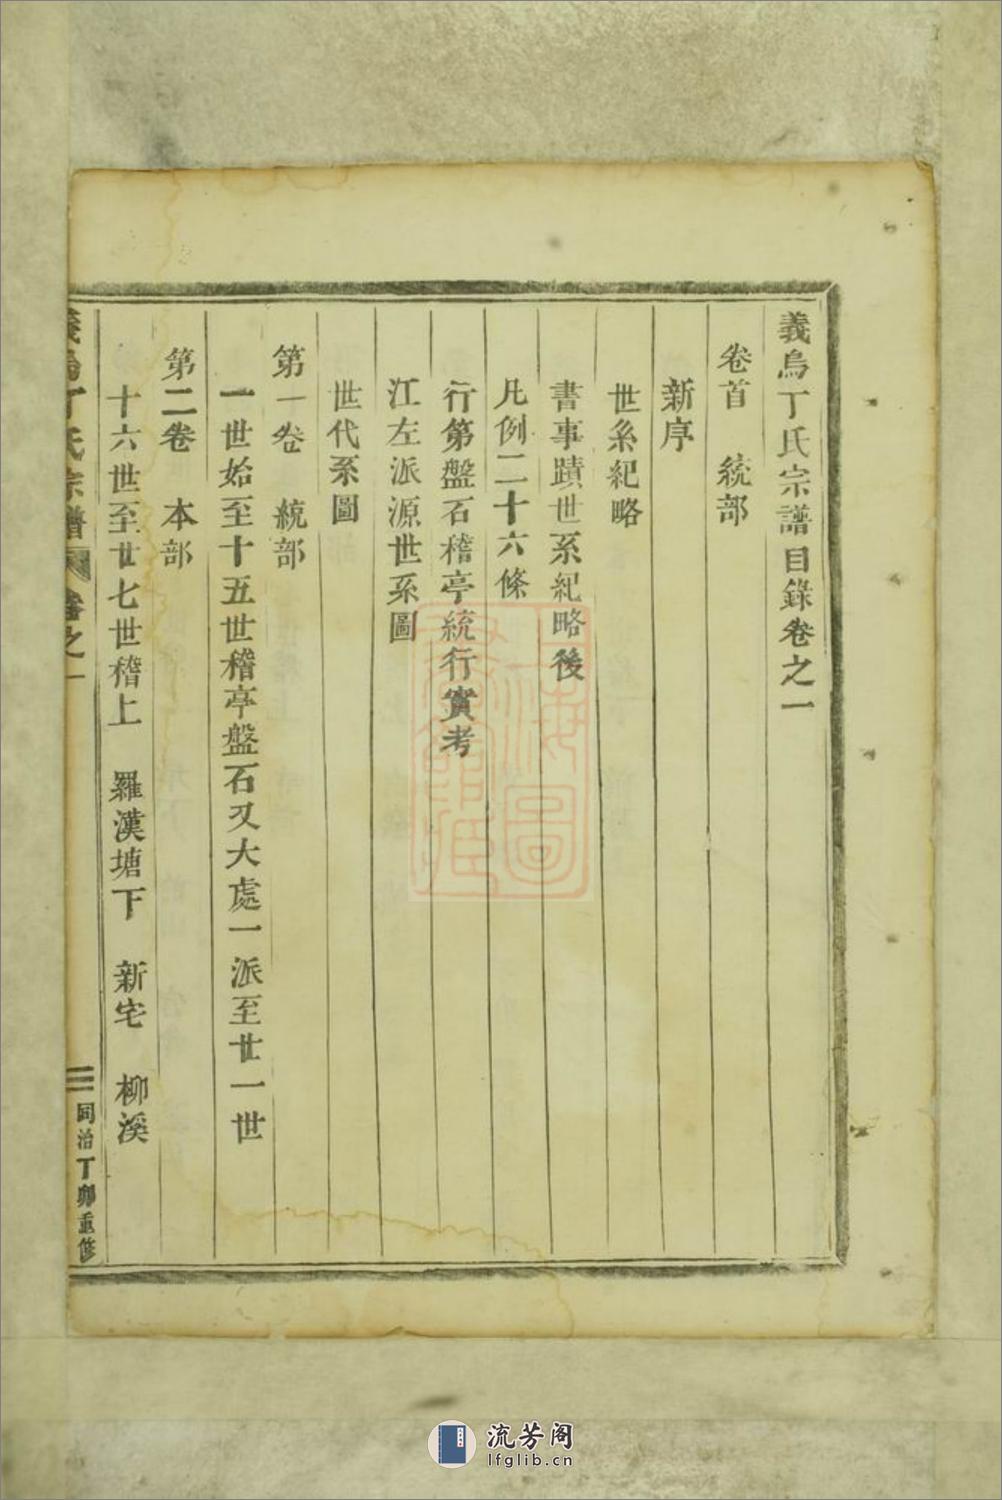 義烏丁氏宗譜目錄卷之一
卷首　統部
新序
世系紀略
書事蹟世系紀略後
凡例二十六條
行第盤石稽亭統行實考
江左派源世系圖
世代系圖
第一卷　統部
一世始至十五世稽亭盤石又大處一派至廿一世
第二卷　本部
十六世至廿七世稽上　羅漢塘下　新宅　柳溪
義烏丁氏宗譜　卷之一　三　同治丁卯重修
上海圖書館藏
流芳阁
lfglib.com